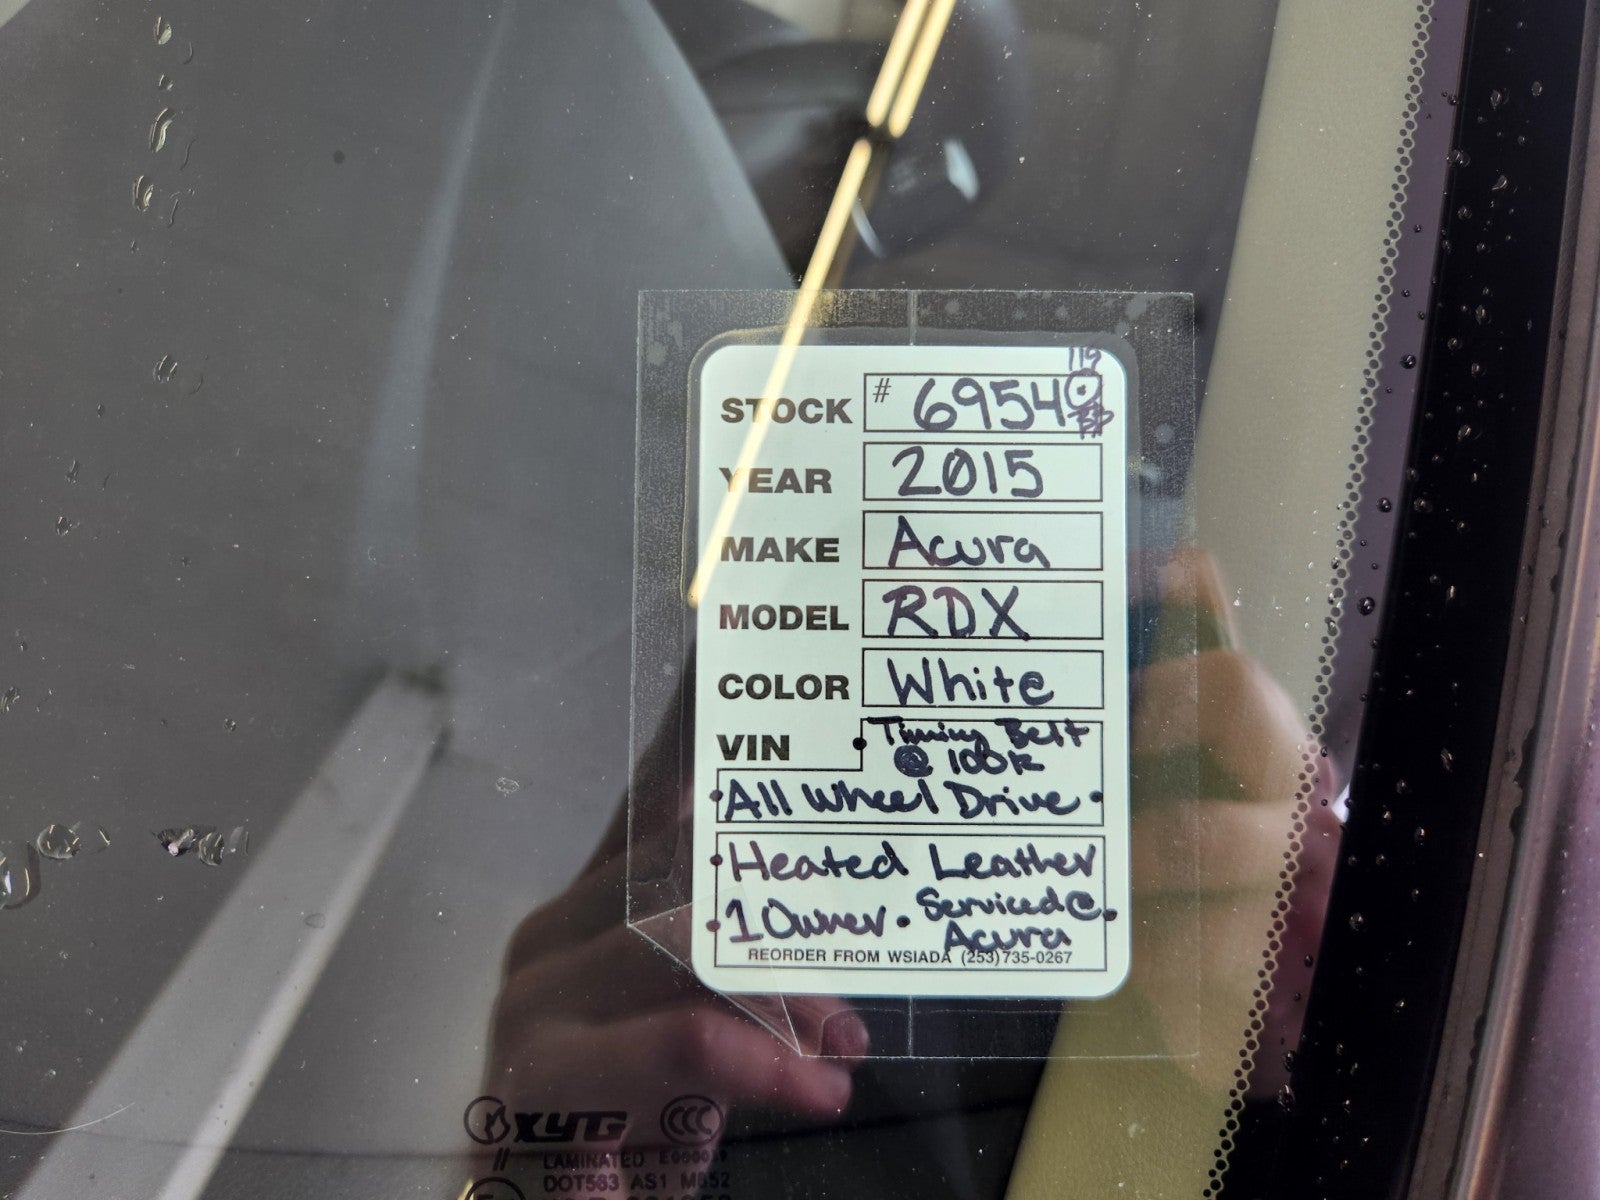 119
STOCK # 6954
YEAR 2015
MAKE Acura
MODEL RDX
COLOR White
VIN • Timing Belt
@ 100K
• All Wheel Drive •
• Heated Leather
• 1 Owner • Serviced @ •
Acura
REORDER FROM WSIADA (253)735-0267
XYG CCC
// LAMINATED
DOT563 AS1 M852